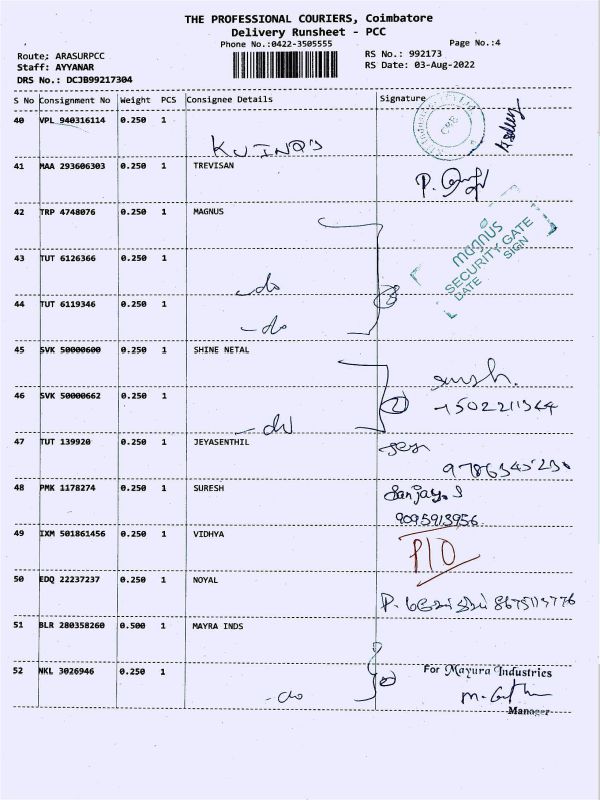 THE PROFESSIONAL COURIERS, Coimbatore
Delivery Runsheet - PCC
Phone No.:0422-3505555
Page No.:4
Route; ARASURPCC
Staff: AYYANAR
DRS No.: DCJB99217304
RS No.: 992173
RS Date: 03-Aug-2022
S No Consignment No Weight PCS Consignee Details Signature
40 VPL 940316114 0.250 1
41 MAA 293606303 0.250 1 TREVISAN
42 TRP 4748076 0.250 1 MAGNUS
magnus
SECURITY GATE
DATE SIGN
43 TUT 6126366 0.250 1
-do
44 TUT 6119346 0.250 1
-do
45 SVK 50000600 0.250 1 SHINE NETAL
46 SVK 50000662 0.250 1
-do
47 TUT 139920 0.250 1 JEYASENTHIL
48 PMK 1178274 0.250 1 SURESH
Sanjay.S
9095913956
49 IXM 501861456 0.250 1 VIDHYA
P/O
50 EDQ 22237237 0.250 1 NOYAL
51 BLR 280358260 0.500 1 MAYRA INDS
52 NKL 3026946 0.250 1
-do
For Mayura Industries
Manager